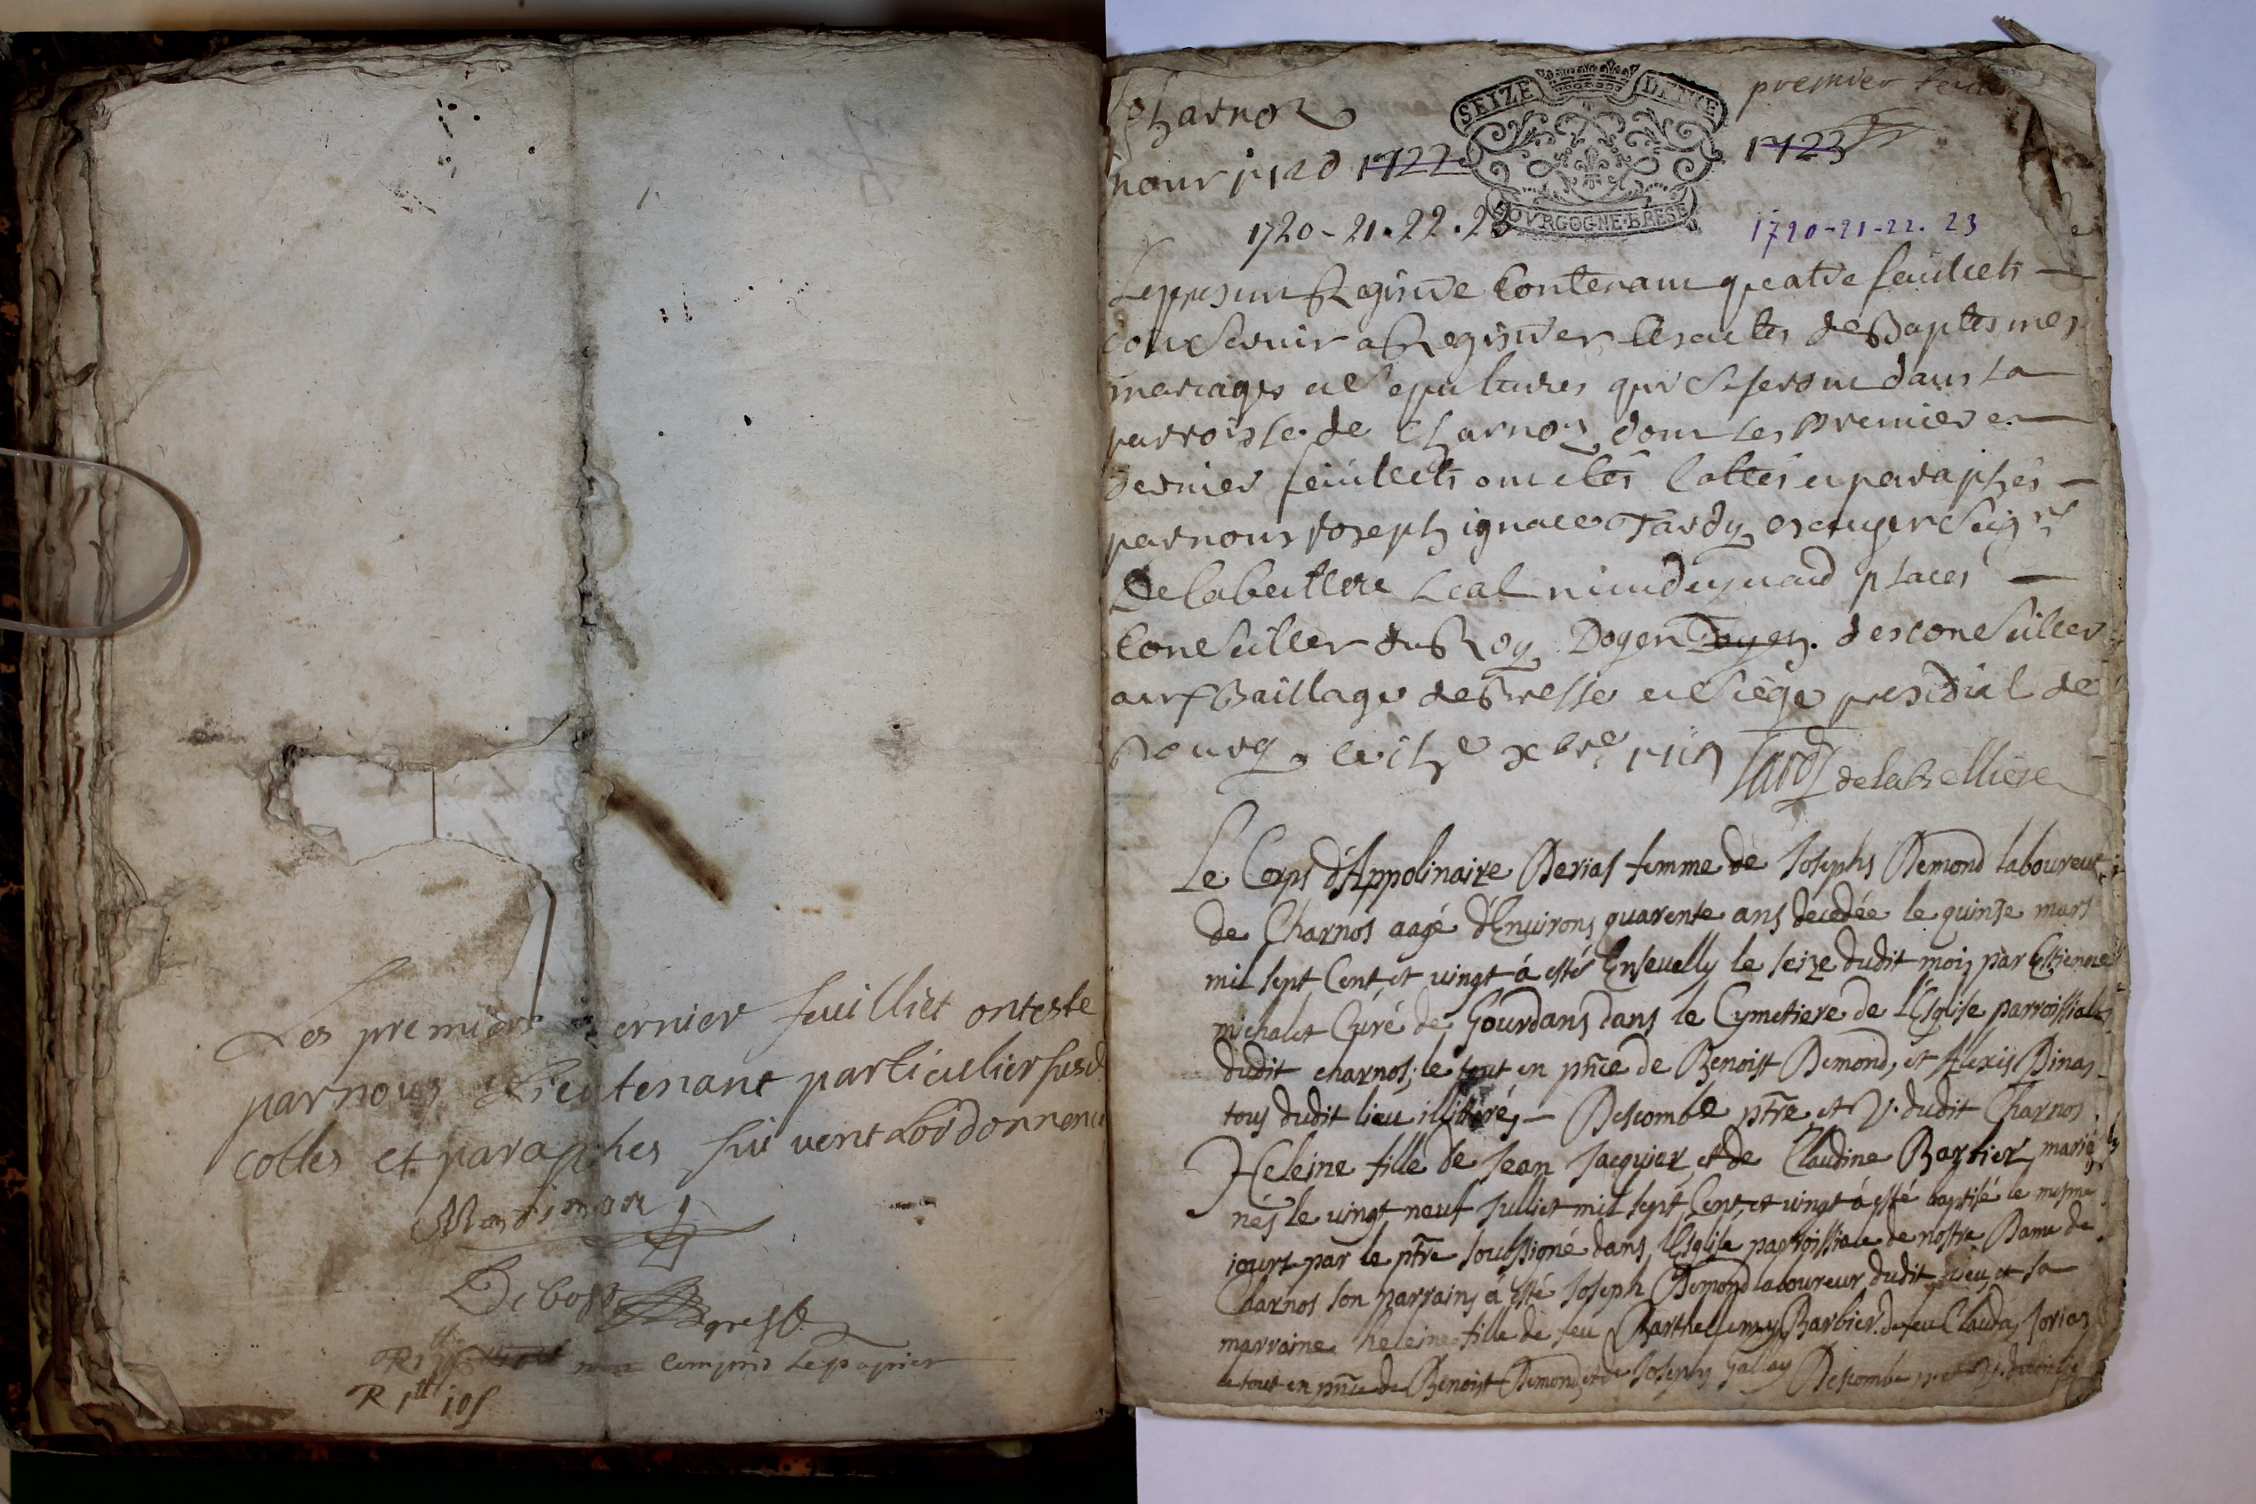 Les premier et dernier feuilliet ont este
par nous Lieutenant particulier susd.
cottes et paraphes suivent Lordonnence
R 1tt 10s
compris Le papier
Charnoz
premier feuillet
pour 1720 1722
1723
SEIZE DENIE
BOVRGOGNE·BRESE
1720-21.22.23
1720-21-22.23
Le present Registre Contenant quatre feuillets
doit servir a Registrer les actes de Baptesmes
mariages et sepultures qui se feront dans la
parroisse de Charnoz dont les premier et
dernier feuillets ont etés Cottés et paraphés
par nous Joseph ignace Tardy escuyer Seigr
De labeillere
Conseiller du Roy Doyen Doyen des conseiller
au Baillage de Bresse et siège presidial de
Bourg
Tardy delaBelliere
Le Corps d'Appolinaire Derias femme de Josephs Demond laboureur
de Charnos aagé d'Environs quarente ans decedée le quinze mars
mil sept Cent et vingt á esté Ensevelly le seize dudit mois par Estienne
michalet Curé de Gourdans dans le Cymetiere de L'Eglise parroissiale
dudit charnos; le tout en pnce de Benoist Demond, et Alexis Dinas
tous dudit lieu illiteré, Descombe ptre et V. dudit Charnos
Heleine fille de Jean Jacquier et de Claudine Bartier mariés
nés le vingt neuf Julliet mil sept Cent et vingt á esté baptisé le mesme
jours par le ptre soubssigné dans L'Eglise parroissiale de nostre Dame de
Charnos son parrains á esté Joseph Demond laboureur dudit lieu, et sa
marraine heleine fille de feu Barthellemy Barbier de feu Clauda Jorias
le tout en pnce de Benoist Demond et de Joseph Gallay Descombe